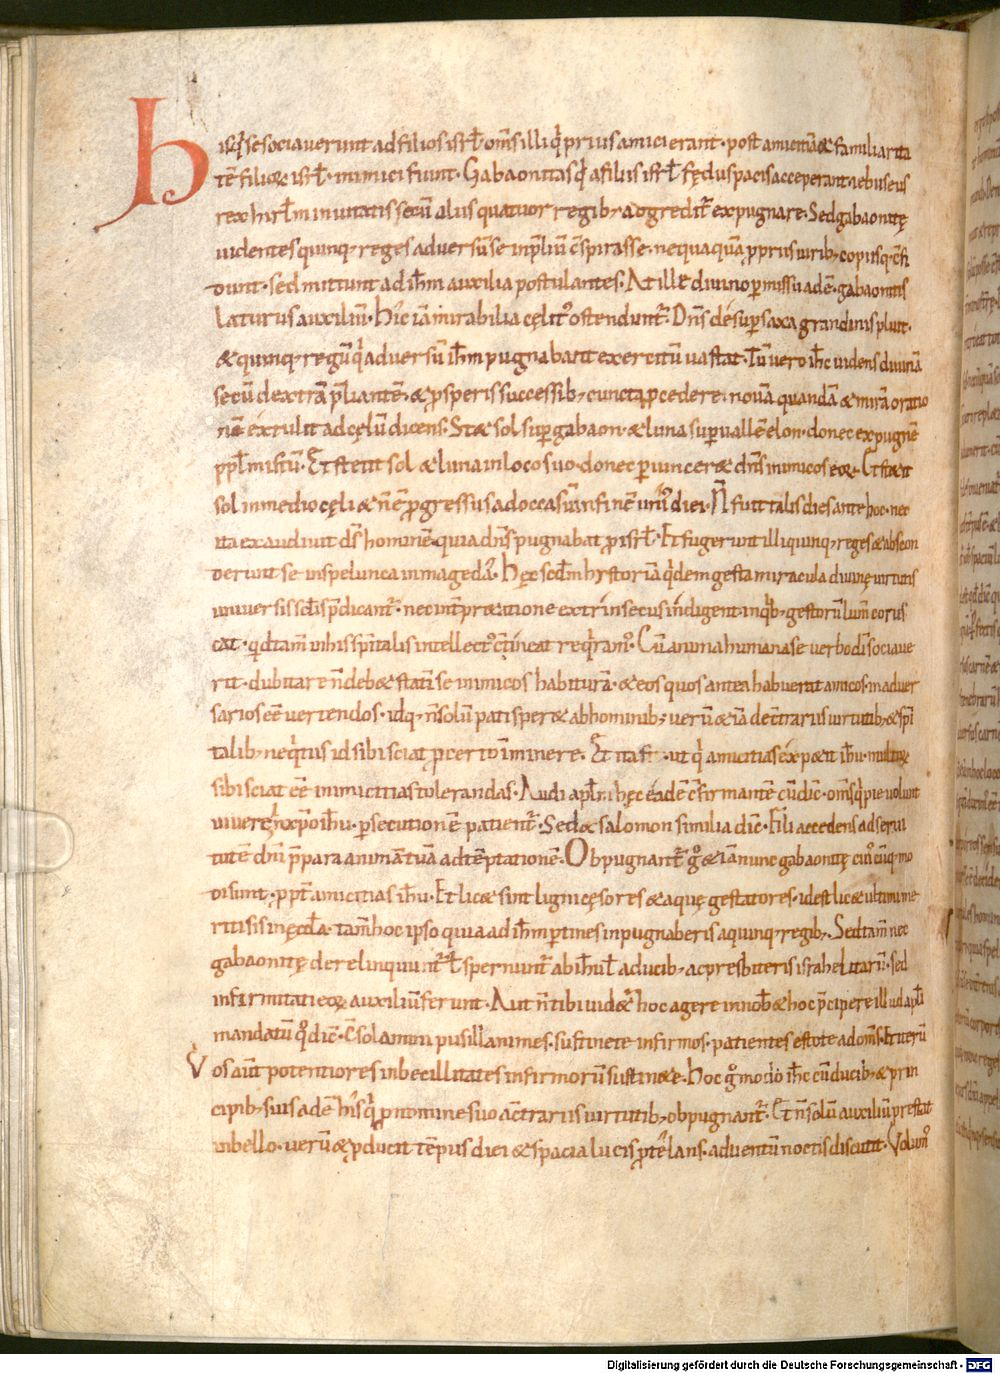 His q̇ se sociaverunt ad filios isrl̄ om̄s illi q̇ prius amici erant · post amicitiā & familiarita
tē filioꝝ isrl̄ · inimici fiunt · Gabaonitas q̇ a filiis isrl̄ fędus pacis acceperant iebuseus
rex hirl̄m invitatis secū aliis quatuor regib; adgredit̄ expugnare · Sed gabaonitę
videntes quinq; reges adversū se in p̄liū c̄spirasse · nequaquā p̱priis virib; copiisq· c̄fi
dunt · sed mittunt ad ih̄m auxilia postulantes · At ille divino p̱missu adē · gabaonitis
laturus auxiliū · Hi̓c iā mirabilia cęlitꝰ ostendunt̄ · Dn̄s desup̱ saxa grandinis pluit ·
& quinq; regū q̇ adversū ih̄m pugnabant exercitū vastat · Tū vero ih̄c videns divinā
secū dextrā p̄liantē · & p̱speris successib; cuncta p̱cedere · novā quandā & mirā oratio
nē extulit ad cęlū dicens · St& sol sup̱ gabaon · & luna sup̱ vallē elon · donec expugnē
pp̄lm istū · Et stetit sol & luna in loco suo · donec p̱vincer& dn̄s inimicos eoꝝ · Et st&it
sol in medio cęli & n̄ ē p̱gressus ad occasū in finē uniꝰ diei · N̄ fuit talis dies ante hoc · nec
ita exaudivit ds̄ hominē · quia dn̄s pugnabat p̱ isrl̄ · Et fugerunt illi quinq; reges & abscon
derunt se in spelunca in mageda · Hęc scd̄m hystoriā q̇dem gesta miracula divinę virtutis
universis scl̄is p̄dicant̄ · nec int̄p̱r&atione extrinsecus indigent · in q̇b; gestorū lum̄ corus
cat · qd̄ tam̄ in his sp̄italis intellectꝰ c̄tineat req̇ramꝰ · Cū anima humana se verbo dī sociave
rit · dubitare n̄ deb& statī se inimicos habiturā · & eos quos antea habuerat amicos · in adver
sarios ēē vertendos · idq; n̄ solū pati sper& ab hominib; verū & iā de c̄trariis virtutib; & sp̄i
talib; neq̇tiis id sibi sciat p̱ certo iminere · Et ita fit · ut q̇ amicitias exp&it ih̄u · multoꝝ
sibi sciat ēē inimicitias tolerandas · Audi apl̄m hęc eadē c̄firmantē cū dic̄ · om̄s q̇ pie volunt
vivere in xp̄o ih̄u · p̱secutionē patient̄ · Sed & salomon similia dic̄ · Fili accedens ad servi
tutē dn̄i p̄para animā tuā ad tēptationē · Obpugnant̄ g̊ & iā nunc gabaonitę cuiꝰcūq· mo
di sunt · p̱pt̄ amicitias ih̄u · Et lic& sint lignicęsores & aquę gestatores · id est lic& ultimi me
riti sis in ęccl̄a · tam̄ hoc ipso quia ad ih̄m p̱tines inpugnaberis a quinq; regib; · Sed tam̄ nec
gabaonitę derelinquunt̄ t̄ spernunt̄ ab ih̄u t̄ a ducib; ac presbiteris israhelitarū · sed
infirmitati eoꝝ auxiliū ferunt · Aut n̄ tibi vid&̄ hoc agere in nob̄ & hoc p̄cipere illud apl̄i
mandatū q̊ dic̄ · C̄solamini pusillanimes · sustinete infirmos · patientes estote ad om̄s · Et iterū
Vos aūt potentiores inbecillitates infirmorū sustin&e · Hoc g̊ modo ih̄c cū ducib; & prin
cipib; suis adē his q̇ p̱ nomine suo a c̄trariis virtutib; obpugnant̄ · Et n̄ solū auxiliū prestat
in bello · verū & p̱ducit tēpus diei & spacia lucis p̱telans · adventū noctis discutit · Volumꝰ
Digitalisierung gefördert durch die Deutsche Forschungsgemeinschaft - DFG